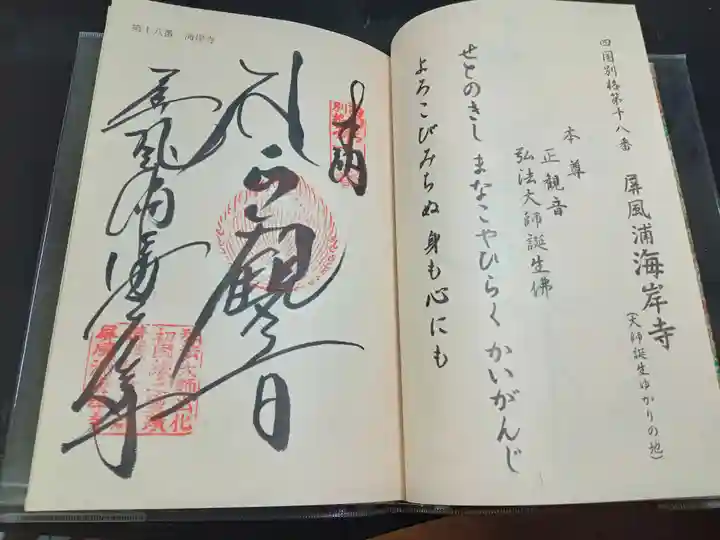 四国別格第十八番 屏風浦海岸寺
(大師誕生ゆかりの地)
本尊
正観音
弘法大師誕生佛
せとのきし まなこやひらく かいがんじ
よろこびみちぬ 身も心にも
第十八番 海岸寺
奉納
正観音
屏風浦海岸寺